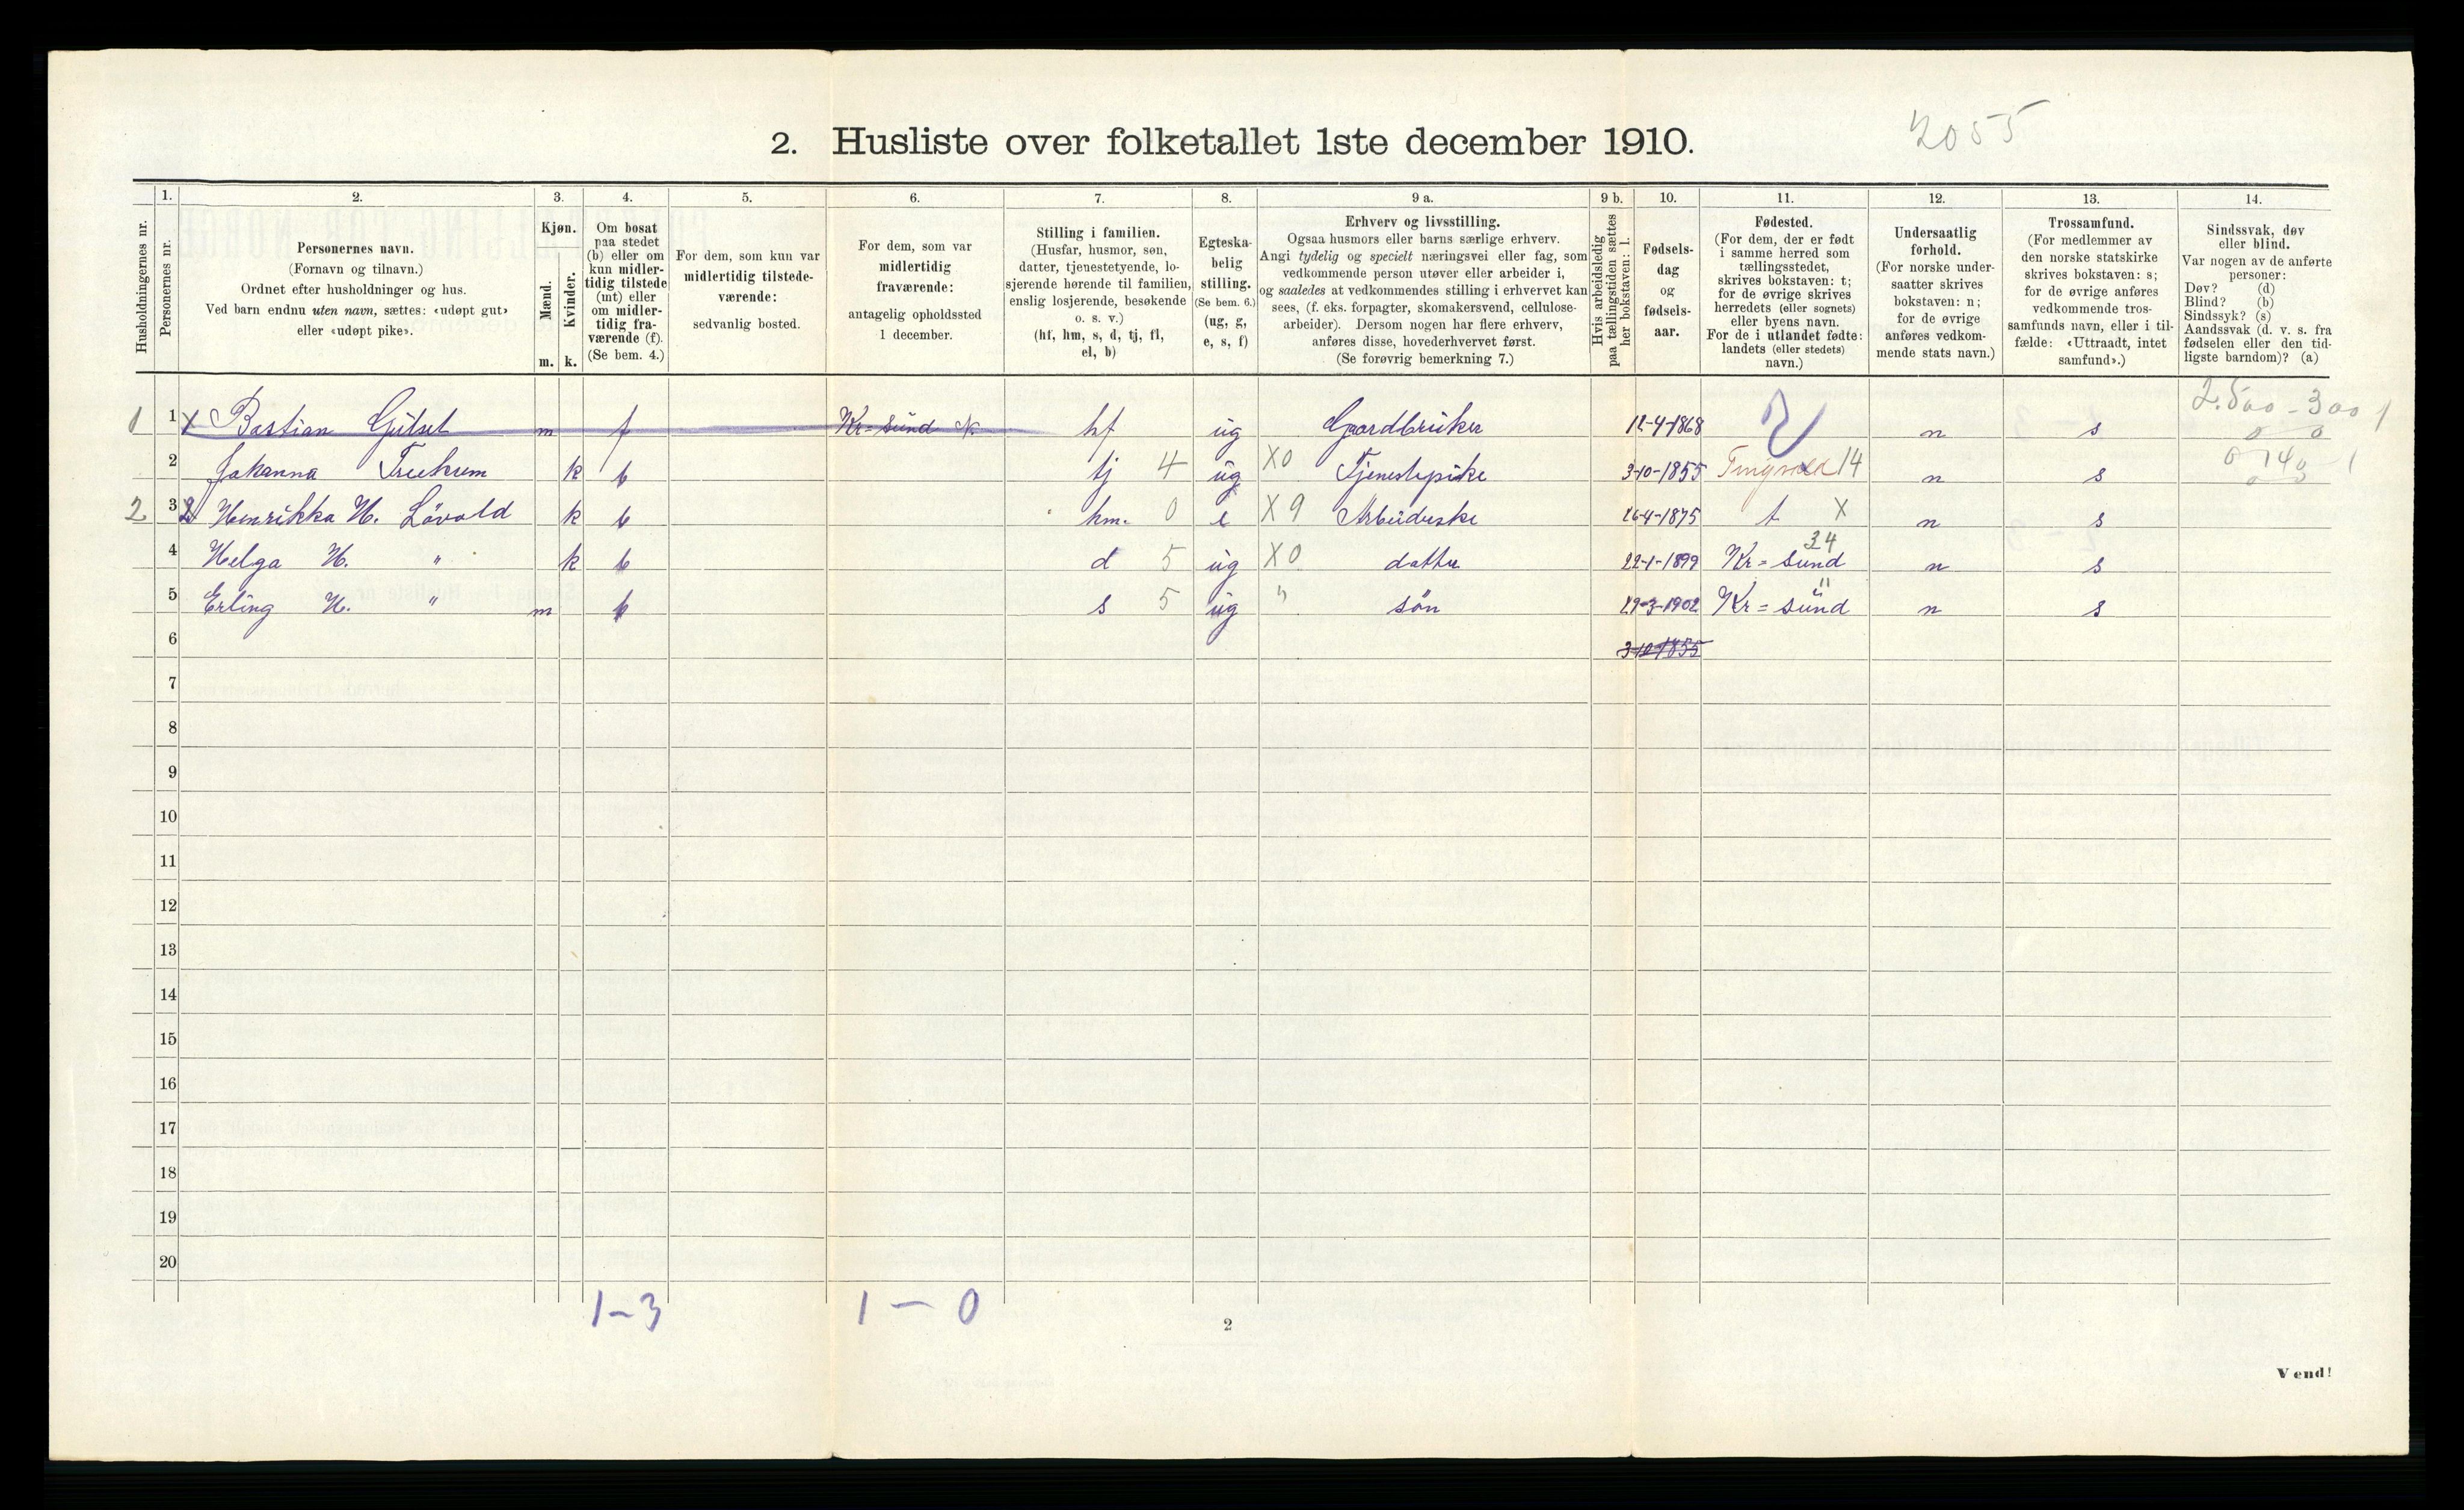 2055
2. Husliste over folketallet 1ste december 1910.
Husholdningernes nr.
1. Personernes nr.
2. Personernes navn. (Fornavn og tilnavn.) Ordnet efter husholdninger og hus. Ved barn endnu uten navn, sættes: «udøpt gut» eller «udøpt pike».
3. Kjøn. Mænd. m. Kvinder. k.
4. Om bosat paa stedet (b) eller om kun midlertidig tilstede (mt) eller om midlertidig fraværende (f). (Se bem. 4.)
5. For dem, som kun var midlertidig tilstedeværende: sedvanlig bosted.
6. For dem, som var midlertidig fraværende: antagelig opholdssted 1 december.
7. Stilling i familien. (Husfar, husmor, søn, datter, tjenestetyende, losjerende hørende til familien, enslig losjerende, besøkende o. s. v.) (hf, hm, s, d, tj, fl, el, b)
8. Egteskabelig stilling. (Se bem. 6.) (ug, g, e, s, f)
9 a. Erhverv og livsstilling. Ogsaa husmors eller barns særlige erhverv. Angi tydelig og specielt næringsvei eller fag, som vedkommende person utøver eller arbeider i, og saaledes at vedkommendes stilling i erhvervet kan sees, (f. eks. forpagter, skomakersvend, cellulosearbeider). Dersom nogen har flere erhverv, anføres disse, hovederhvervet først. (Se forøvrig bemerkning 7.)
9 b. Hvis arbeidsledig paa tællingstiden sættes her bokstaven: l.
10. Fødselsdag og fødselsaar.
11. Fødested. (For dem, der er født i samme herred som tællingsstedet, skrives bokstaven: t; for de øvrige skrives herredets (eller sognets) eller byens navn. For de i utlandet fødte: landets (eller stedets) navn.)
12. Undersaatlig forhold. (For norske undersaatter skrives bokstaven: n; for de øvrige anføres vedkommende stats navn.)
13. Trossamfund. (For medlemmer av den norske statskirke skrives bokstaven: s; for de øvrige anføres vedkommende trossamfunds navn, eller i tilfælde: «Uttraadt, intet samfund».)
14. Sindssvak, døv eller blind. Var nogen av de anførte personer: Døv? (d) Blind? (b) Sindssyk? (s) Aandssvak (d. v. s. fra fødselen eller den tidligste barndom)? (a)
1 1 x Bastian Gjulset m f Kr-sund N hf ug Gaardbruker 12-4-1868 n s 2.500 - 300 1
2 Johanna k b tj 4 ug X0 Tjenestepike 3-10-1855 14 n s 0 140 1
2 3 Henrikka H. Lövold k b hm. 0 e X9 Arbeiderske 26-4-1875 t X n s
4 Helga H. " k b d 5 ug X0 datter 22-1-1899 Kr=sund 34 n s
5 Erling H. " m b s 5 ug " søn 29-3-1902 Kr=sund " n s
6 3-10-1855
7
8
9
10
11
12
13
14
15
16
17
18
19
20
1-3 1-0
2
Vend!